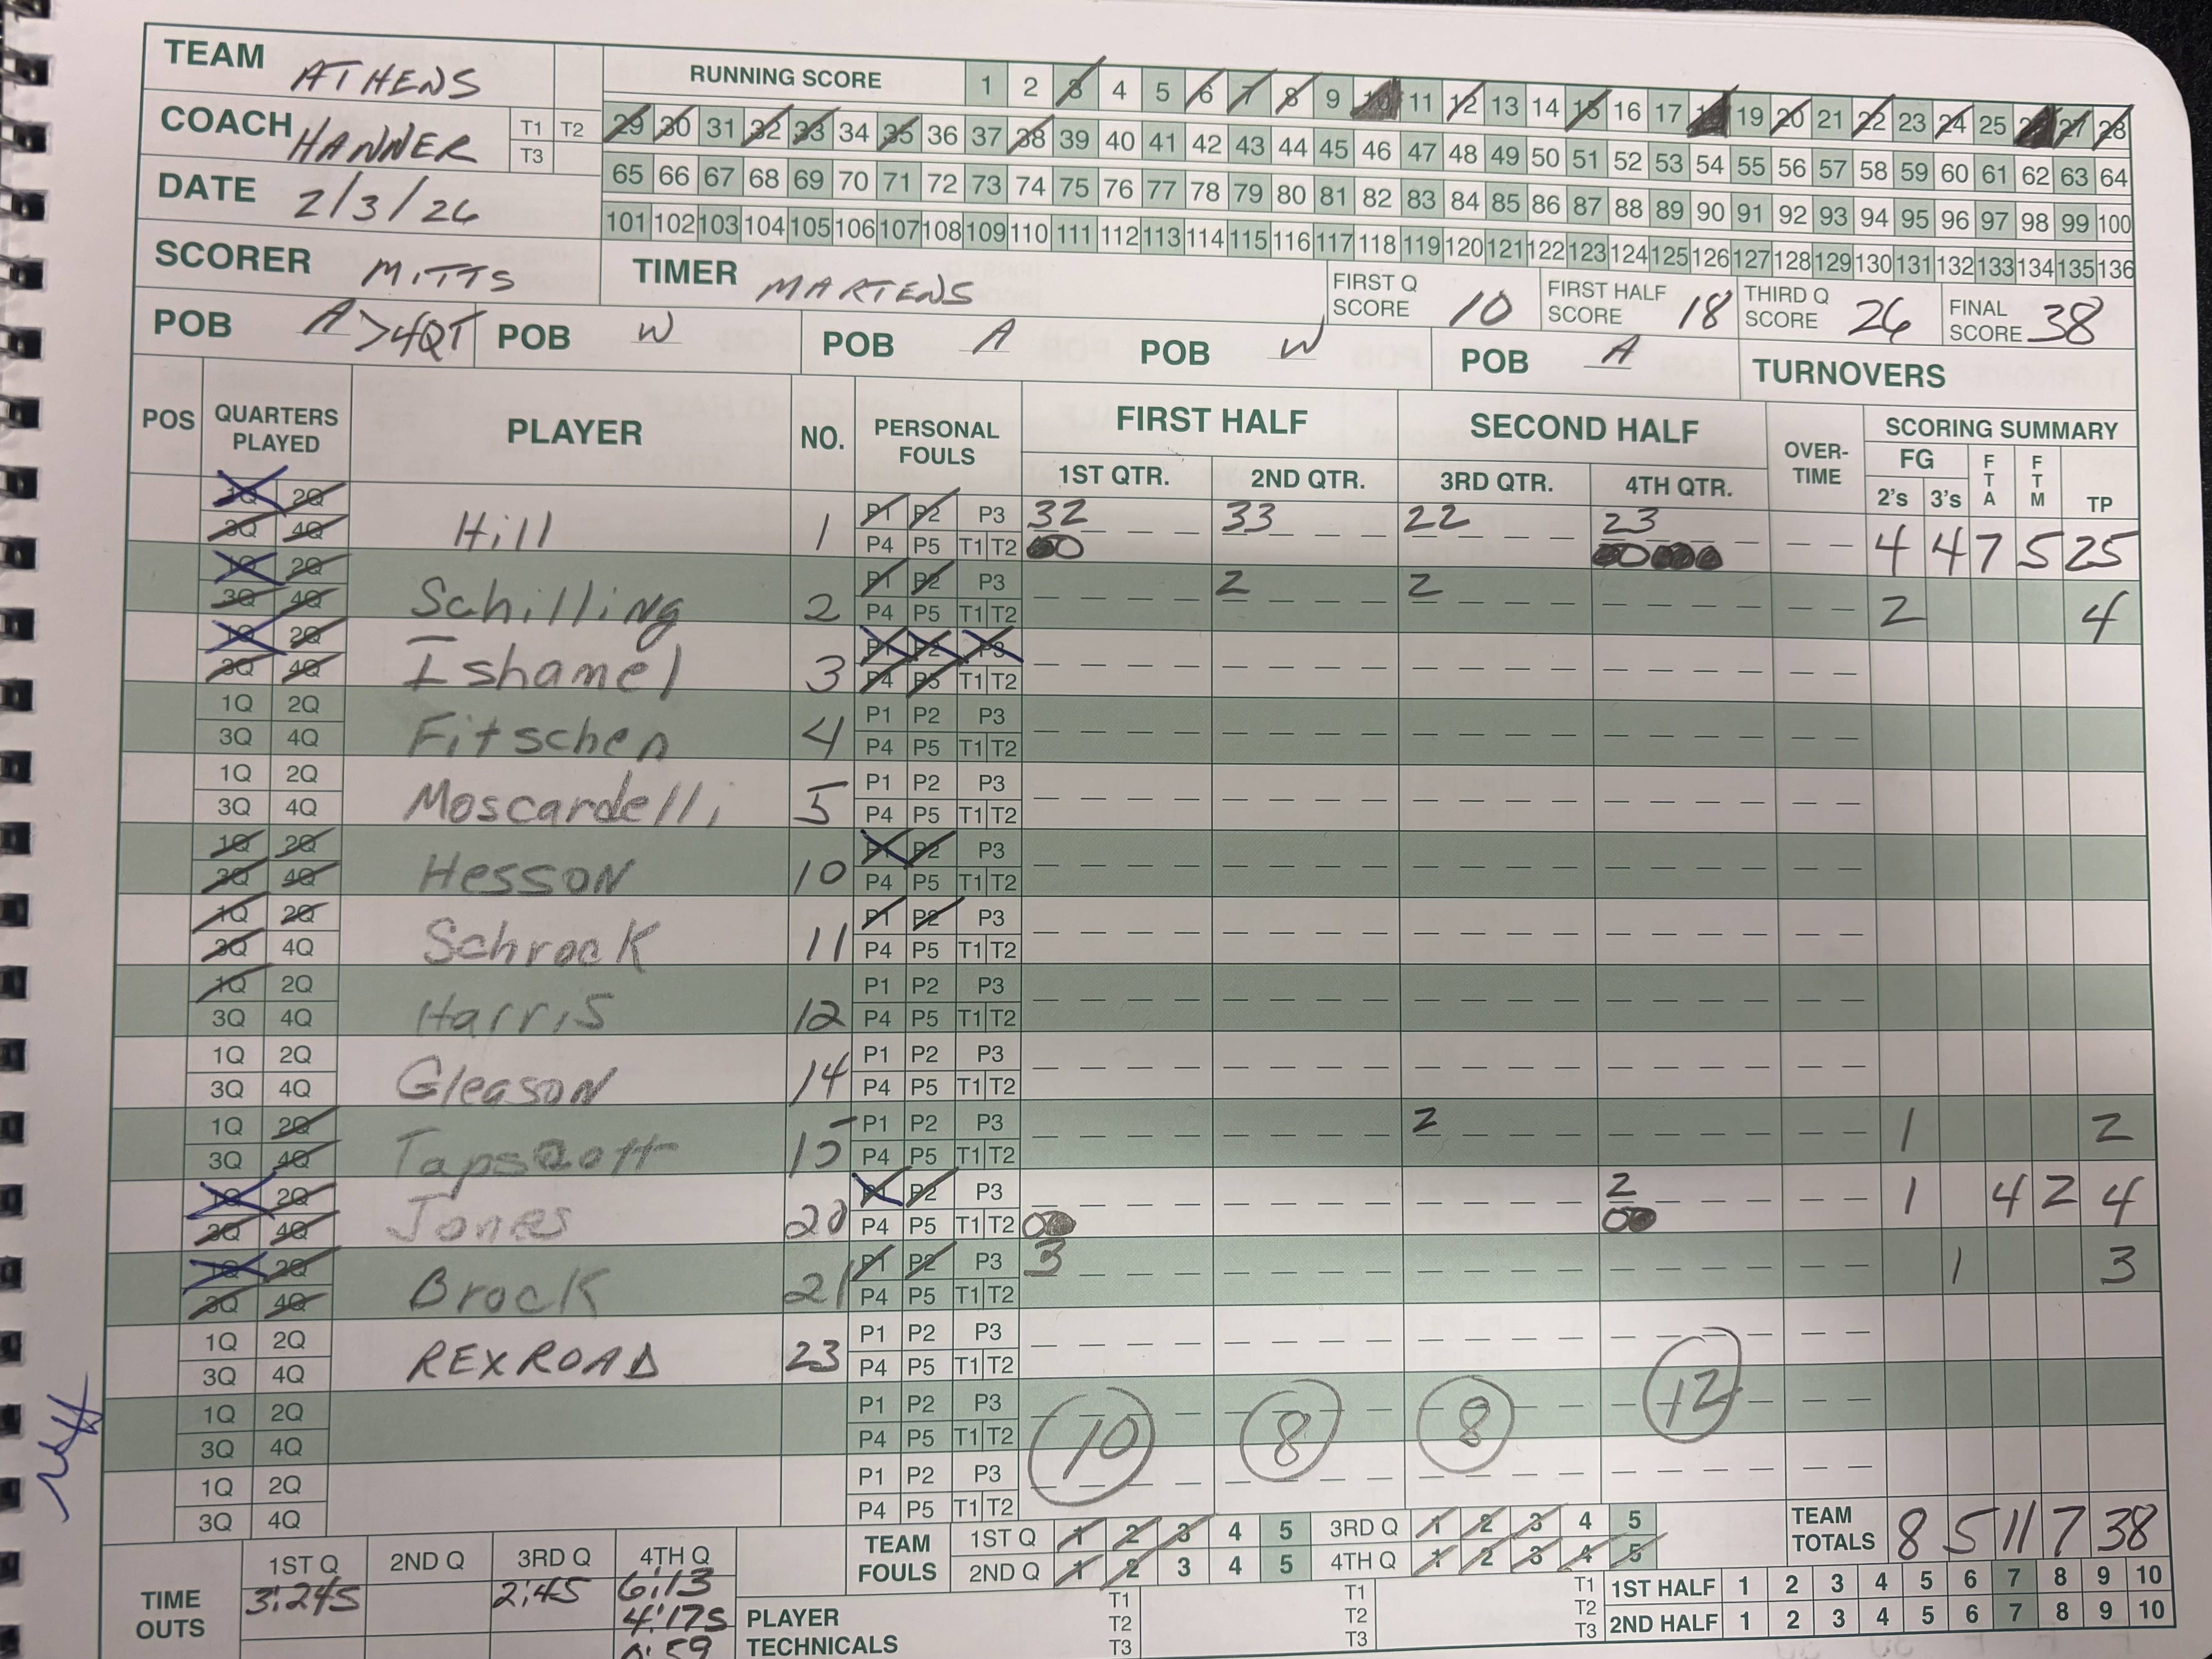 TEAM ATHENS
RUNNING SCORE 1 2 3 4 5 6 7 8 9 10 11 12 13 14 15 16 17 18 19 20 21 22 23 24 25 26 27 28
COACH HANNER T1 T2 T3
29 30 31 32 33 34 35 36 37 38 39 40 41 42 43 44 45 46 47 48 49 50 51 52 53 54 55 56 57 58 59 60 61 62 63 64
65 66 67 68 69 70 71 72 73 74 75 76 77 78 79 80 81 82 83 84 85 86 87 88 89 90 91 92 93 94 95 96 97 98 99 100
DATE 2/3/26
101 102 103 104 105 106 107 108 109 110 111 112 113 114 115 116 117 118 119 120 121 122 123 124 125 126 127 128 129 130 131 132 133 134 135 136
SCORER MITTS TIMER MARTENS FIRST Q SCORE 10 FIRST HALF SCORE 18 THIRD Q SCORE 26 FINAL SCORE 38
POB A >4QT POB W POB A POB W POB A TURNOVERS
POS QUARTERS PLAYED PLAYER NO. PERSONAL FOULS FIRST HALF SECOND HALF OVER-TIME SCORING SUMMARY
1ST QTR. 2ND QTR. 3RD QTR. 4TH QTR. FG 2's 3's FTA FTM TP
1Q 2Q Hill 1 P1 P2 P3 32 33 22 23 4 4 7 5 25
3Q 4Q P4 P5 T1 T2
1Q 2Q Schilling 2 P1 P2 P3 2 2 2 4
3Q 4Q P4 P5 T1 T2
1Q 2Q Ishamel 3 P1 P2 P3
3Q 4Q P4 P5 T1 T2
1Q 2Q Fitschen 4 P1 P2 P3
3Q 4Q P4 P5 T1 T2
1Q 2Q Moscardelli 5 P1 P2 P3
3Q 4Q P4 P5 T1 T2
1Q 2Q Hesson 10 P1 P2 P3
3Q 4Q P4 P5 T1 T2
1Q 2Q Schrock 11 P1 P2 P3
3Q 4Q P4 P5 T1 T2
1Q 2Q Harris 12 P1 P2 P3
3Q 4Q P4 P5 T1 T2
1Q 2Q Gleason 14 P1 P2 P3
3Q 4Q P4 P5 T1 T2
1Q 2Q Tapscott 15 P1 P2 P3 2 1 2
3Q 4Q P4 P5 T1 T2
1Q 2Q Jones 20 P1 P2 P3 2 1 4 2 4
3Q 4Q P4 P5 T1 T2
1Q 2Q Brock 21 P1 P2 P3 3 1 3
3Q 4Q P4 P5 T1 T2
1Q 2Q REXROAD 23 P1 P2 P3
3Q 4Q P4 P5 T1 T2
1Q 2Q P1 P2 P3 10 8 8 12
3Q 4Q P4 P5 T1 T2
1Q 2Q P1 P2 P3
3Q 4Q P4 P5 T1 T2
TEAM FOULS 1ST Q 1 2 3 4 5 3RD Q 1 2 3 4 5 TEAM TOTALS 8 5 11 7 38
2ND Q 1 2 3 4 5 4TH Q 1 2 3 4 5
TIME OUTS 1ST Q 2ND Q 3RD Q 4TH Q
3:24s 2:45 6:13
4:17s
0:59
PLAYER TECHNICALS T1 T2 T3 T1 T2 T3 T1 T2 T3
1ST HALF 1 2 3 4 5 6 7 8 9 10
2ND HALF 1 2 3 4 5 6 7 8 9 10